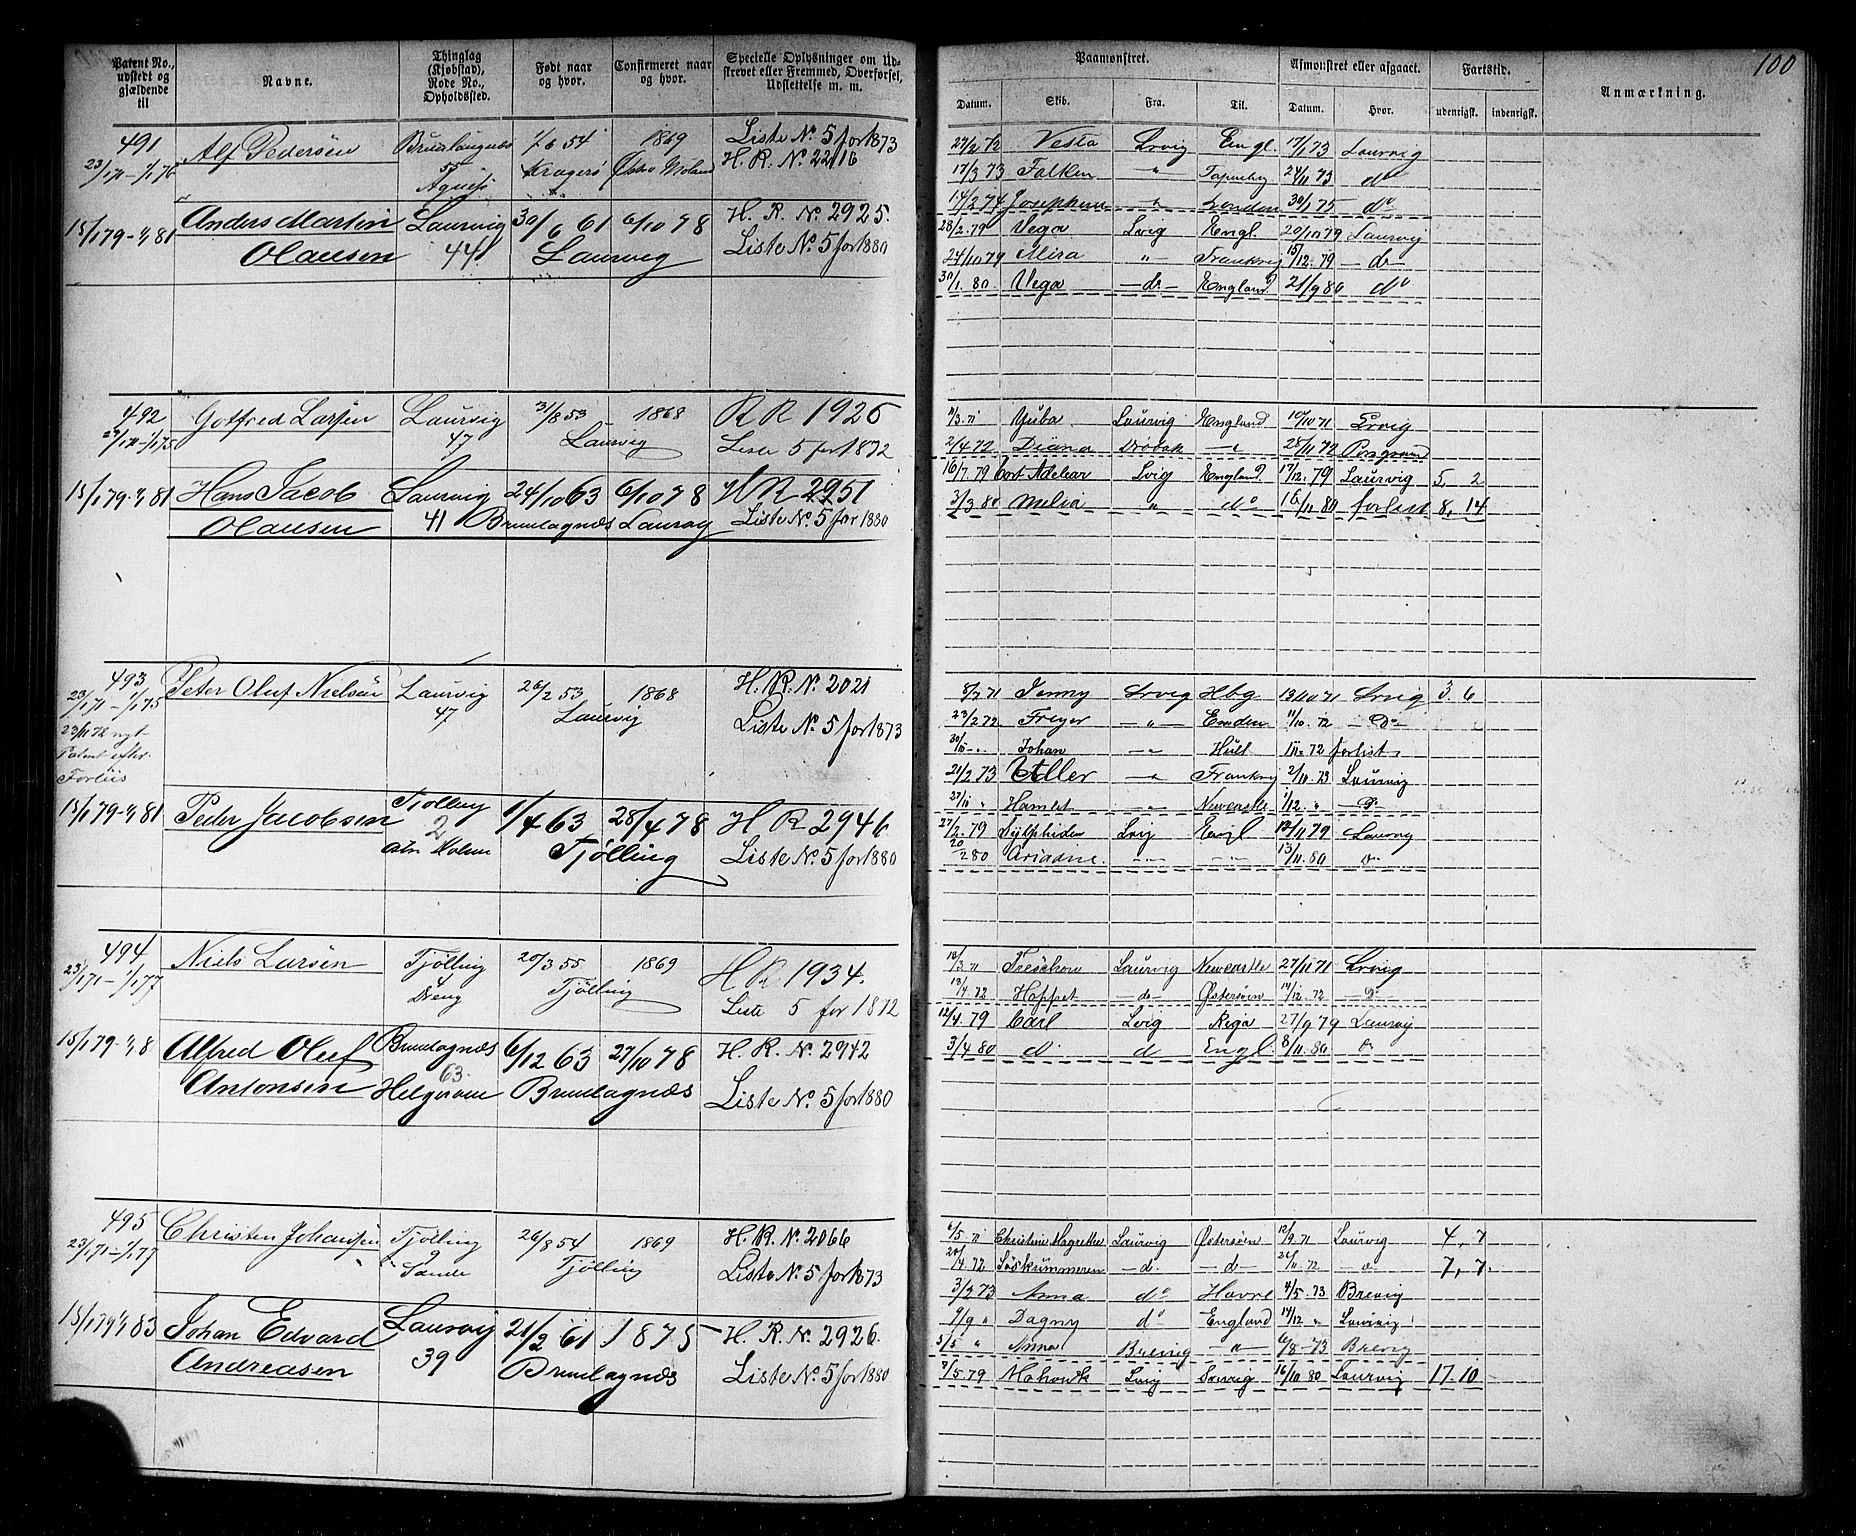 Patent No., udstedt og gjældende til
Navne.
Thinglag (Kjøbstad), Rode No., Opholdssted.
Født naar og hvor.
Confirmeret naar og hvor.
Specielle Oplysninger om Udstrevet eller Fremmed, Overførsel, Udslettelse m. m.
Paamønstret.
Afmønstret eller afgaaet.
Fartstid.
Anmærkning.
100
Datum. Skib. Fra. Til. Datum. Hvor. udenrigsk. indenrigsk.
491 Alf Pedersen Brunlaugnæs 1/6 54 1869 Liste No. 5 for 1873
23/1 71 - 1/1 76 55 Kragerø Østre Moland H. R. No. 2216
Agnæs
24/2 72 Vesta Lrvig Engl. 17/1 73 Laurvig
17/3 73 Falken " 24/11 73 do
14/2 74 Josephine " London 30/1 75 do
15/1 79 - 1/1 81 Anders Martin Laurvig 30/6 61 6/10 78 H. R. No. 2925.
Olausen 44 Laurvig Liste No. 5 for 1880
28/2 79 Vega Lvig Engl. 20/10 79 Laurvig
24/10 79 Mira " Frankrig 15/12. 79 do
30/1. 80. Vega do England 21/9 80 do
492 Gotfred Larsen Laurvig 31/8 53 1868 H R 1926
23/1 71 - 1/1 75 47 Laurvig Liste 5 for 1872
11/3 71 Yuba Laurvig England 10/10 71 Lrvig
2/4 72 Diana Drøbak " 28/11 72 Porsgrund
15/1 79 - 1/1 81 Hans Jacob Laurvig 24/10 63 6/10 78 H R 2951
Olausen 41 Brunlagnæs Laurvig Liste No. 5 for 1880
16/7. 79 Cort Adelear Lvig England 17/12. 79 Laurvig 5, 2
3/3 80 Melia " do 16/11 80 forlist 8, 14
493 Peter Oluf Nielsen Laurvig 26/2 53 1868 H. R. No. 2021
23/1 71 - 1/1 75 47 Laurvig Liste No. 5 for 1873
23/11 72 nyt
Patent efter
Forliis
8/2 71 Jenny Lrvig Hbg 13/10 71 Lrvig 3. 6
23/2 72 Freyer " Emden 11/10. 72 Do
30/10 Johan " Hull 1/11. 72 forlist
21/2 73 Adler " Frankrig 2/10. 73 Laurvig
27/10 " Hamlet " Newcastle 1/12. " Do
15/1 79 - 1/1 81 Peder Jacobsen Tjølling 1/4 63 28/4 78 H R 2946
2 Tjølling Liste No. 5 for 1880
27/2. 79 Sylphiden Lvig Engl 12/11 79 Laurvig
20/2 80 Ariadne. " " 13/11. 80 do
494 Niels Larsen Tjølling 20/3 55 1869 H R 1934.
23/1 71 - 1/1 77 Tjølling Liste 5 for 1872
18/3 71 Treschow Laurvig Newcastle 27/11 71 Lrvig
13/4 72 Hoppet do Østersøen 14/12. 72 Do
15/1 79 - 1/1 8 Alfred Oluf Brunlagnæs 6/12 63 27/10 78 H. R. No. 2942
Antonsen 63. Helgeroae Brunlagnæs Liste No. 5 for 1880
12/4. 79 Carl Lvig Riga 27/9 79 Laurvig
3/4 80 d. d Engl. 8/11. 80 do
495 Christen Johansen Tjølling 26/8 54 1869 H. R. No. 2066
23/1 71 - 1/1 77 9 Tjølling Liste No. 5 for 1873
Sande
6/5. 71 Christine Magrethe Laurvig Østersøen 12/9. 71 Laurvig 4, 7
20/4. 72 do do 26/11. 72 do 7, 7.
3/2 73 Anna do Havre 4/5. 73 Brevig
9/9 " Dagny do England 14/12 " Laurvig
5/5 " Anna Brevig " 6/8 73 Brevig
15/1 79 1/1 83 Johan Edvard Laurvig 21/2 61 1875 H. R. No. 2926.
Andreasen 39 Brunlagnæs Liste No. 5 for 1880
7/5. 79 Mohawk Lvig 16/10 80 Laurvig 17. 10